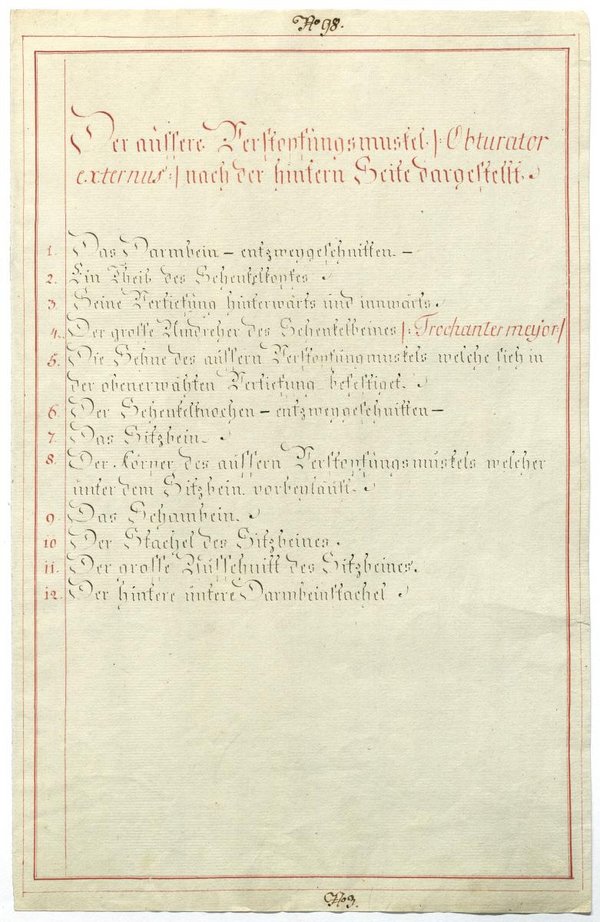 No 98.
Der äussere Verstopfungsmuskel /: Obturator
externus :/ nach der hintern Seite dargestellt.
1. Das Darmbein – entzweygeschnitten. –
2. Ein Theil des Schenkelkopfes
3. Seine Vertiefung hinterwärts und innwärts.
4. Der grosse Umdreher des Schenkelbeines /: Trochanter major /
5. Die Sehne des äussern Verstopfungmuskels welche sich in
der obenerwähten Vertiefung befestiget.
6. Der Schenkelknochen – entzweygeschnitten –
7. Das Sitzbein.
8. Der Körper des äussern Verstopfungsmuskels welcher
unter dem Sitzbein vorbeyläuft.
9. Das Schambein.
10 Der Stachel des Sitzbeines.
11. Der grosse Ausschnitt des Sitzbeines.
12. Der hintere untere Darmbeinstachel
No 3.